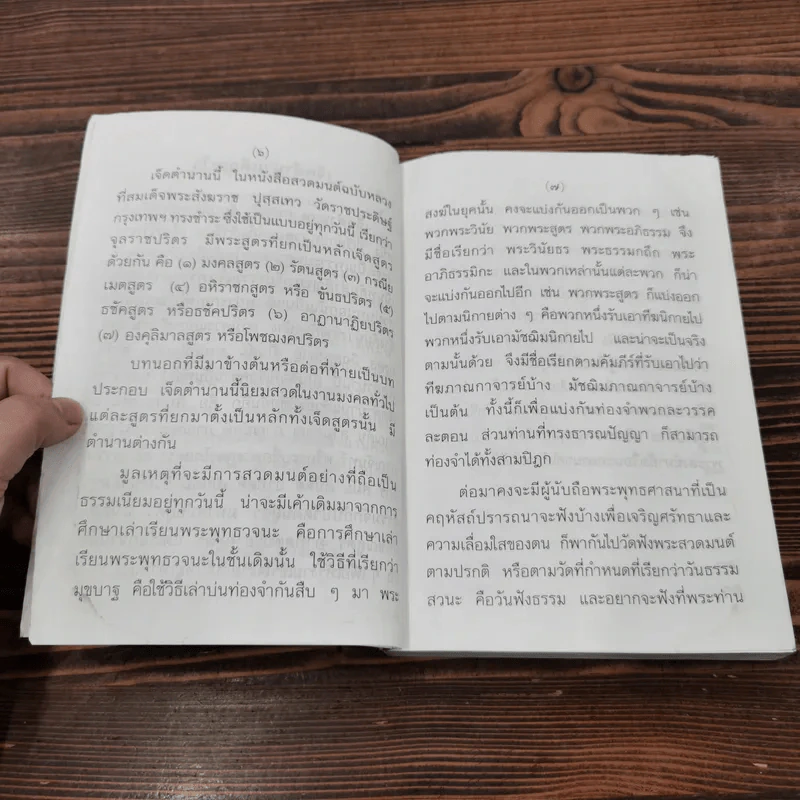 (๖)
เจ็ดตำนานนี้ ในหนังสือสวดมนต์ฉบับหลวง
ที่สมเด็จพระสังฆราช ปุสฺสเทว วัดราชประดิษฐ์
กรุงเทพฯ ทรงชำระ ซึ่งใช้เป็นแบบอยู่ทุกวันนี้ เรียกว่า
จุลราชปริตร มีพระสูตรที่ยกเป็นหลักเจ็ดสูตร
ด้วยกัน คือ (๑) มงคลสูตร (๒) รัตนสูตร (๓) กรณีย
เมตสูตร (๔) อหิราชกสูตร หรือ ขันธปริตร (๕)
ธชัคสูตร หรือธชัคปริตร (๖) อาฏานาฏิยปริตร
(๗) องคุลิมาลสูตร หรือโพชฌงคปริตร
บทนอกที่มีมาข้างต้นหรือต่อที่ท้ายเป็นบท
ประกอบ เจ็ดตำนานนี้นิยมสวดในงานมงคลทั่วไป
แต่ละสูตรที่ยกมาตั้งเป็นหลักทั้งเจ็ดสูตรนั้น มี
ตำนานต่างกัน
มูลเหตุที่จะมีการสวดมนต์อย่างที่ถือเป็น
ธรรมเนียมอยู่ทุกวันนี้ น่าจะมีเค้าเดิมมาจากการ
ศึกษาเล่าเรียนพระพุทธวจนะ คือการศึกษาเล่า
เรียนพระพุทธวจนะในชั้นเดิมนั้น ใช้วิธีที่เรียกว่า
มุขบาฐ คือใช้วิธีเล่าบ่นท่องจำกันสืบ ๆ มา พระ
(๗)
สงฆ์ในยุคนั้น คงจะแบ่งกันออกเป็นพวก ๆ เช่น
พวกพระวินัย พวกพระสูตร พวกพระอภิธรรม จึง
มีชื่อเรียกว่า พระวินัยธร พระธรรมกถึก พระ
อาภิธรรมิกะ และในพวกเหล่านั้นแต่ละพวก ก็น่า
จะแบ่งกันออกไปอีก เช่น พวกพระสูตร ก็แบ่งออก
ไปตามนิกายต่าง ๆ คือพวกหนึ่งรับเอาทีฆนิกายไป
พวกหนึ่งรับเอามัชฌิมนิกายไป และน่าจะเป็นจริง
ตามนั้นด้วย จึงมีชื่อเรียกตามคัมภีร์ที่รับเอาไปว่า
ทีฆภาณกาจารย์บ้าง มัชฌิมภาณกาจารย์บ้าง
เป็นต้น ทั้งนี้ก็เพื่อแบ่งกันท่องจำพวกละวรรค
ละตอน ส่วนท่านที่ทรงธารณปัญญา ก็สามารถ
ท่องจำได้ทั้งสามปิฎก
ต่อมาคงจะมีผู้นับถือพระพุทธศาสนาที่เป็น
คฤหัสถ์ปรารถนาจะฟังบ้างเพื่อเจริญศรัทธาและ
ความเลื่อมใสของตน ก็พากันไปวัดฟังพระสวดมนต์
ตามปรกติ หรือตามวัดที่กำหนดที่เรียกว่าวันธรรม
สวนะ คือวันฟังธรรม และอยากจะฟังที่พระท่าน